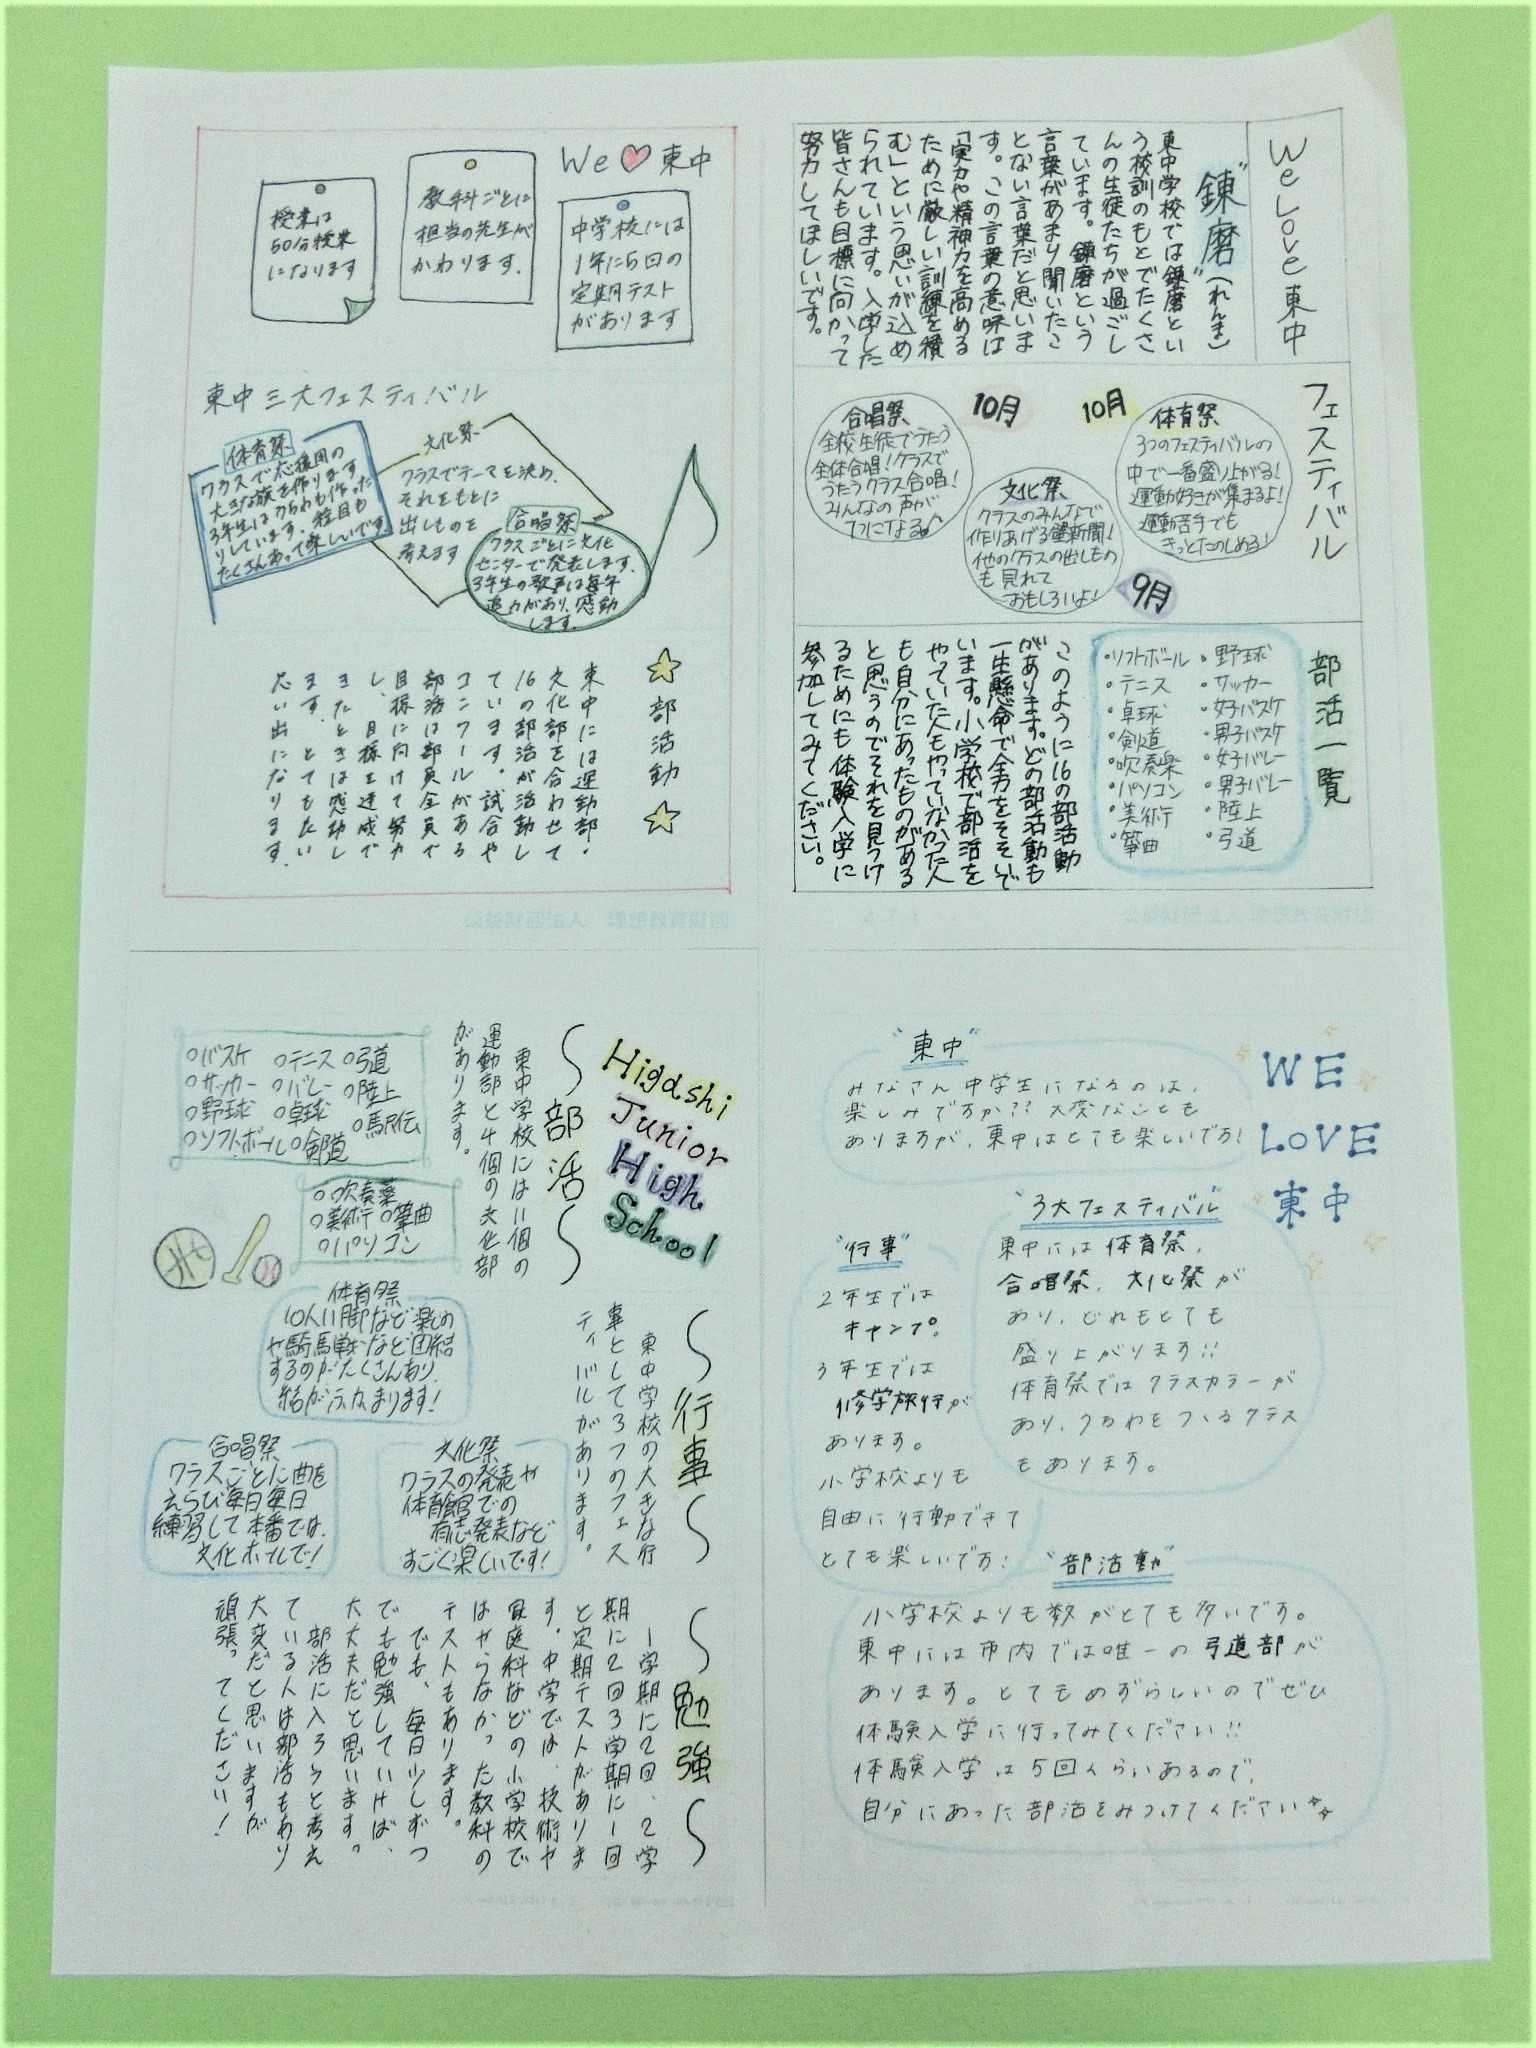 We Love 東中
"錬磨"(れんま)
東中学校では錬磨とい
う校訓のもとでたくさ
んの生徒たちが過ごし
ています。錬磨という
言葉があまり聞いたこ
とない言葉だと思いま
す。この言葉の意味は
「実力や精神力を高める
ために厳しい訓練を積
む」という思いが込め
られています。入学した
皆さんも目標に向かって
努力してほしいです。
フェスティバル
体育祭
10月
3つのフェスティバルの
中で一番盛り上がる!
運動好きが集まるよ!
運動苦手でも
きっとたのしめる!
合唱祭
10月
全校生徒でうたう
全体合唱!クラスで
うたうクラス合唱!
みんなの声が
1つになる♪
文化祭
クラスのみんなで
作りあげる壁新聞!
他のクラスの出しもの
も見れて
おもしろいよ!
9月
部活一覧
・野球
・サッカー
・女子バスケ
・男子バスケ
・女子バレー
・男子バレー
・陸上
・弓道
・ソフトボール
・テニス
・卓球
・剣道
・吹奏楽
・パソコン
・美術
・箏曲
このように16の部活動
があります。どの部活動も
一生懸命で全力をそそいで
います。小学校で部活を
やっていた人もやっていなかった人
も自分にあったものがある
と思うのでそれを見つけ
るためにも体験入学に
参加してみてください。
We ♥ 東中
中学校には
1年に5回の
定期テスト
があります
教科ごとに
担当の先生が
かわります.
授業は
50分授業
になります
東中三大フェスティバル
体育祭
クラスで応援団の
大きな旗を作ります
3年生はうちわも作った
りしています.種目も
たくさんあって楽しいです
文化祭
クラスでテーマを決め、
それをもとに
出しものを
考えます
合唱祭
クラスごとに文化
センターで発表します.
3年生の歌声は毎年
迫力があり、感動
します.
☆部活動☆
東中には運動部・
文化部を合わせて
16の部活が活動し
ています。試合や
コンクールがある
部活は部員全員で
目標に向けて努力
し、目標を達成で
きたときは感動し
ます。とてもたい
たい出になります.
Higashi
Junior
High
School
〜部活〜
東中学校には11個の
運動部と4個の文化部
があります。
○バスケ ○テニス ○弓道
○サッカー ○バレー ○陸上
○野球 ○卓球 ○駅伝
○ソフトボール ○剣道
○吹奏楽
○美術 ○箏曲
○パソコン
〜行事〜
東中学校の大きな行
事として3つのフェス
ティバルがあります。
体育祭
10人11脚など楽しめ
や騎馬戦など団結
するのがたくさんあり、
結がふかまります!
文化祭
クラスの発表や
体育館での
有志発表など
すごく楽しいです!
合唱祭
クラスごとに曲を
えらび毎日毎日
練習して本番では、
文化ホールで!
〜勉強〜
1学期に2回、2学
期に2回3学期に1回
と定期テストがありま
す。中学では、技術や
家庭科などの小学校で
はやらなかった教科の
テストもあります。
でも、毎日少しずつ
でも勉強していけば、
大丈夫だと思います。
部活に入ろうと考え
ている人は部活もあり
大変だと思いますが
頑張ってください!
WE
LOVE
東中
"東中"
みなさん中学生になるのは、
楽しみですか?? 大変なことも
ありますが、東中はとても楽しいです!
"3大フェスティバル"
東中には体育祭、
合唱祭、文化祭が
あり、どれもとても
盛り上がります!!
体育祭ではクラスカラーが
あり、うちわをつくるクラス
もあります。
"行事"
2年生では
キャンプ。
3年生では
修学旅行が
あります。
小学校よりも
自由に行動できて
とても楽しいです!
"部活動"
小学校よりも数がとても多いです。
東中には市内では唯一の弓道部が
あります。とてもめずらしいのでぜひ
体験入学に行ってみてください!!
体験入学は5回くらいあるので、
自分にあった部活をみつけてください